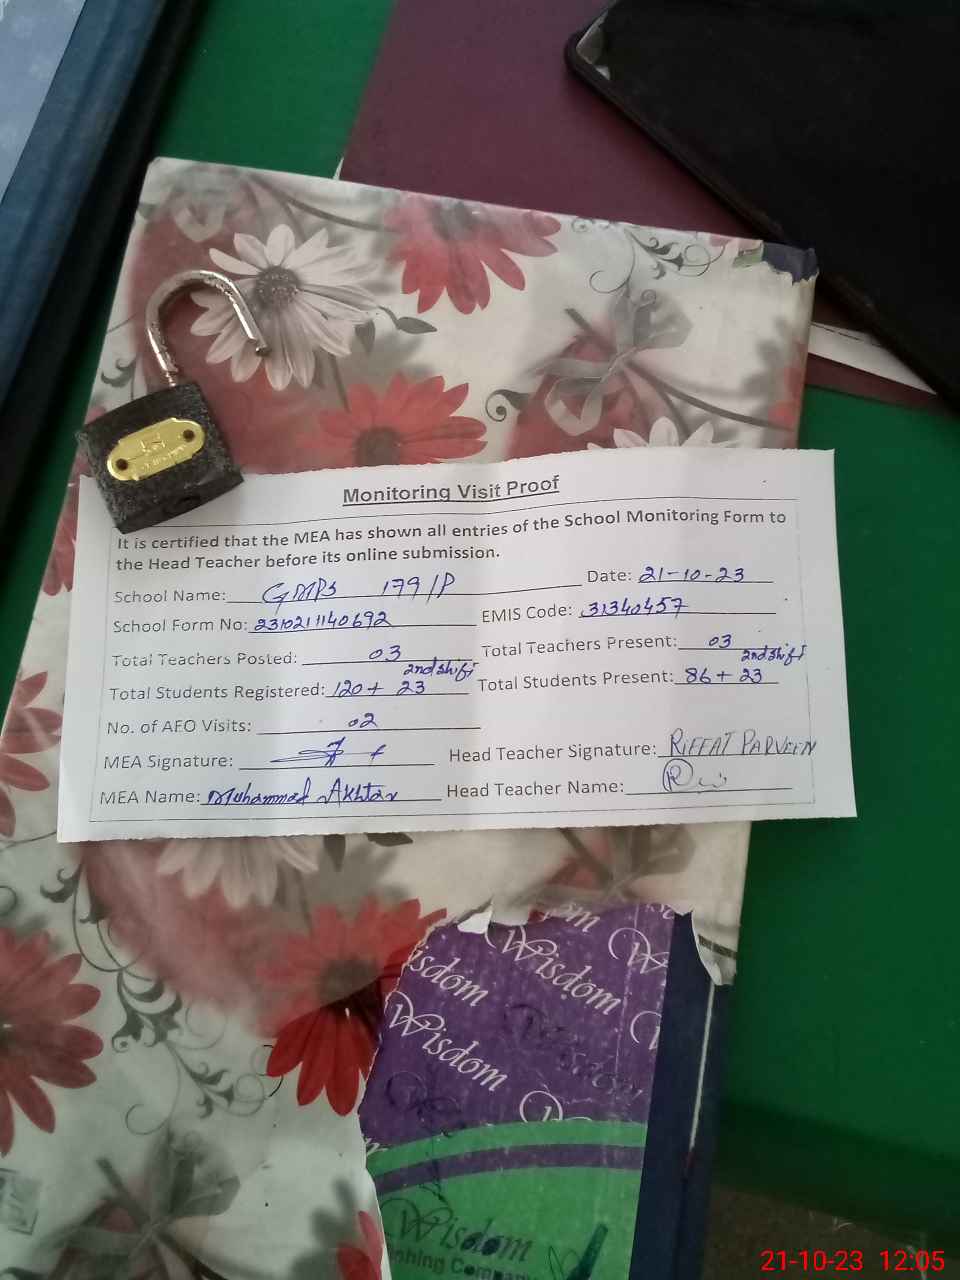 Monitoring Visit Proof
It is certified that the MEA has shown all entries of the School Monitoring Form to
the Head Teacher before its online submission.
School Name: GMPS 179/P Date: 21-10-23
School Form No: 2310211140692 EMIS Code: 31340457
Total Teachers Posted: 03 Total Teachers Present: 03
2nd shift 2nd shift
Total Students Registered: 120 + 23 Total Students Present: 86 + 23
No. of AEO Visits: 02
MEA Signature: Head Teacher Signature: RIFFAT PARVEEN
MEA Name: Muhammad Akhtar Head Teacher Name:
Wisdom
isdom
Wisdom
Wisdom
21-10-23 12:05